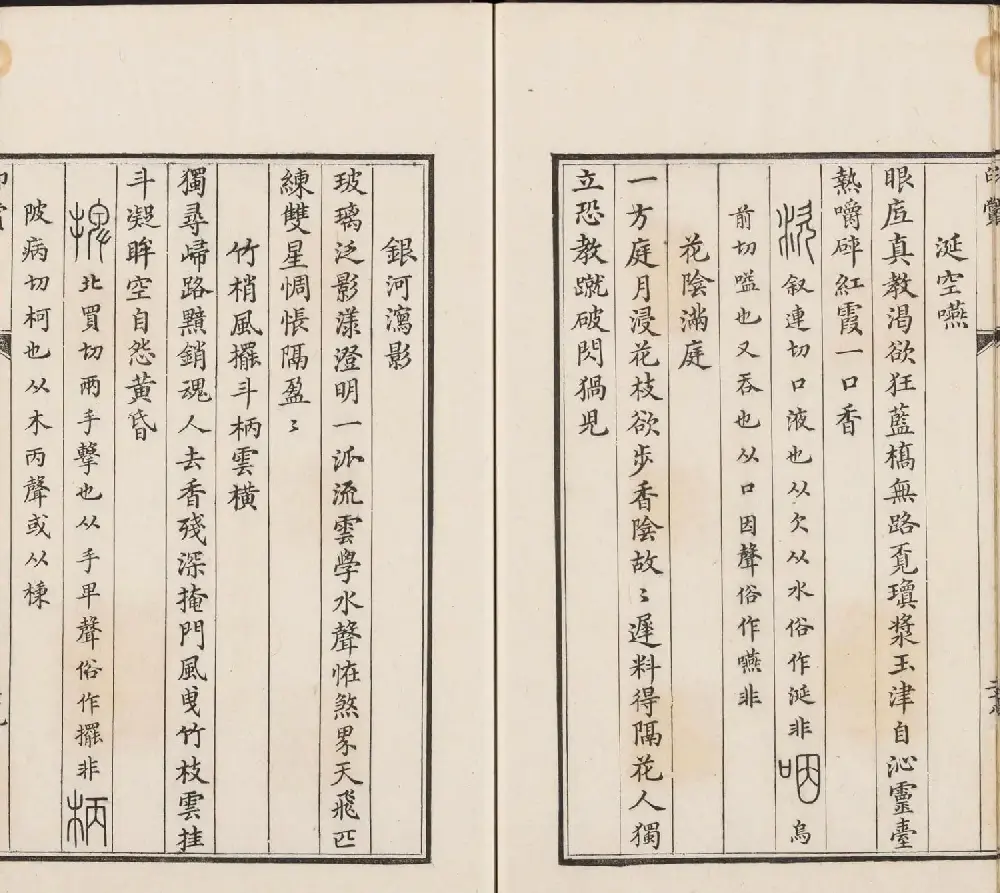 涎空嚥
眼㡳真教渴欲狂藍橋無路覔瓊漿玉津自沁靈臺
熱嚼碎紅霞一口香
㳄叙連切口液也从欠从水俗作涎非咽烏
前切嗌也又吞也从口因聲俗作嚥非
花陰滿庭
一方庭月浸花枝欲步香陰故〻遲料得隔花人獨
立恐教蹴破閃猧兒
銀河瀉影
玻璃泛影漾澄明一派流雲學水聲恠煞界天飛匹
練雙星惆悵隔盈〻
竹梢風擺斗柄雲橫
獨尋歸路黯銷魂人去香殘深掩門風曳竹枝雲挂
斗凝眸空自怨黃昏
捭北買切兩手擊也从手卑聲俗作擺非柄
陂病切柯也从木丙聲或从棅